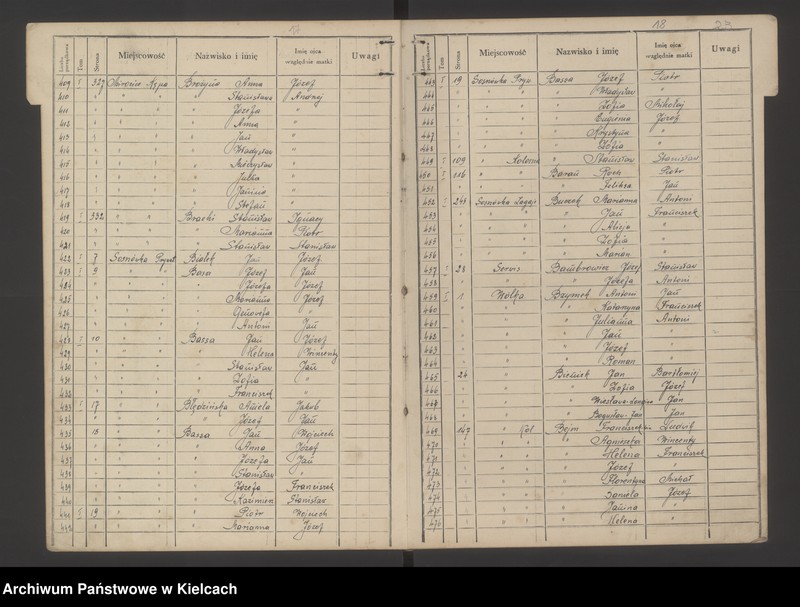 17
Liczba porządkowa Tom Strona Miejscowość Nazwisko i imię Imię ojca względnie matki Uwagi
409 I 327 Anna Józef
410 " " " Stanisława Andrzej
411 " " " Józefa "
412 " " " Anna "
413 " " " Jan "
414 " " " Władysław "
415 " " " Mieczysław "
416 " " " Julia "
417 " " " Janina "
418 " " " Stefan "
419 I 332 " " Bracki Stanisław Ignacy
420 " " " Marianna Piotr
421 " " " Stanisław Stanisław
422 I 7 Sosnówka Bialek Jan Józef
423 I 9 " " Basa Józef Jan
424 " " " Józefa Jan
425 " " " Marianna Józef
426 " " " Genowefa "
427 " " " Antoni Jan
428 I 10 " " Bassa Jan Józef
429 " " " Helena Wincenty
430 " " " Stanisław Jan
431 " " " Zofia "
432 " " " Franciszek "
433 I 17 " " Błędzińska Aniela Jakub
434 " " " Józef Jan
435 18 " " Basza Jan Wojciech
436 " " " Anna Józef
437 " " " Józefa Jan
438 " " " Stanisław "
439 " " " Józefa Franciszek
440 " " " Kazimierz Stanisław
441 I 19 " " " Piotr Wojciech
442 " " " Marianna Józef
18 23
Liczba porządkowa Tom Strona Miejscowość Nazwisko i imię Imię ojca względnie matki Uwagi
443 I 19 Sosnówka Bassa Józef Piotr
444 " " " Władysław "
445 " " " Zofia Mikołaj
446 " " " Eugenia Józef
447 " " " Krystyna "
448 " " " Zofia "
449 I 109 " " Stanisław Stanisław
450 I 116 " " Baran Roch Piotr
451 " " " Feliksa Jan
452 I 243 Sosnówka Buczek Marianna Antoni
453 " " " Jan Franciszek
454 " " " Alicja "
455 " " " Zofia "
456 " " " Marian "
457 I 28 Serwis Bambrowicz Józef Stanisław
458 " " Józefa Antoni
459 I 1 Wólka Bzymek Antoni Jan
460 " " Katarzyna Franciszek
461 " " Julianna Antoni
462 " " Jan "
463 " " Józef "
464 " " Roman "
465 26 " Bieniek Jan Bartłomiej
466 " " Zofia Józef
467 " " Jan
468 " " Bogusław-Jan Jan
469 147 " Kol Bejm Ludwik
470 " " " Agnieszka Wincenty
471 " " " Helena Franciszek
472 " " " Józef "
473 " " " Florentyna Michał
474 " " " Daniela Józef
475 " " " Janina "
476 " " " Helena "
Archiwum Państwowe w Kielcach